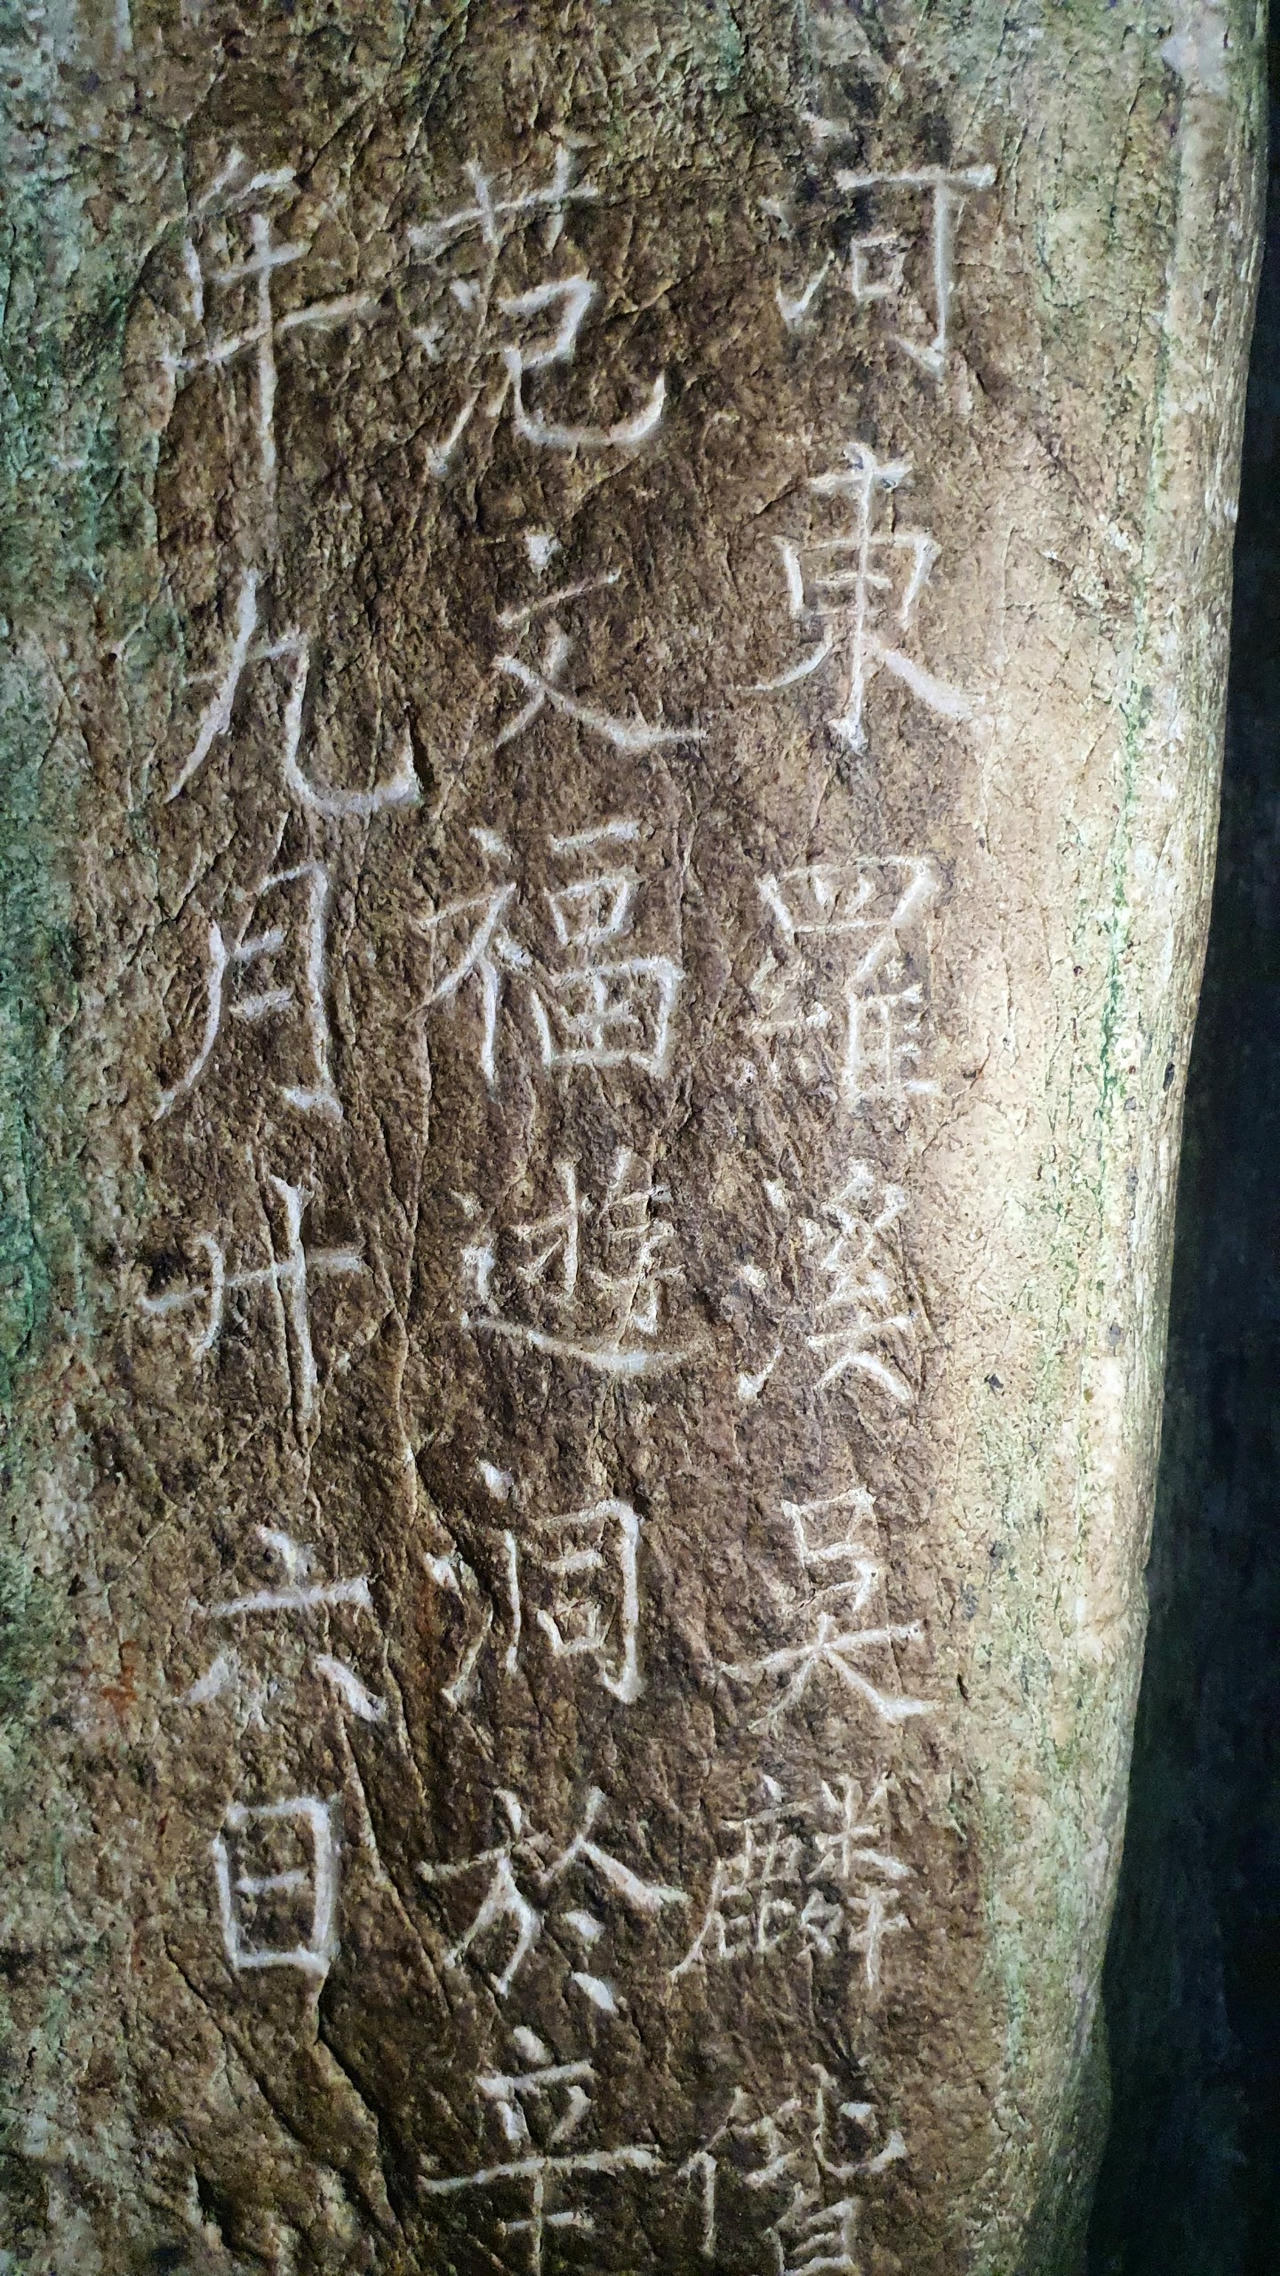 河東羅溪吳麟偕
范文福遊洞於辛
年九月廿六日